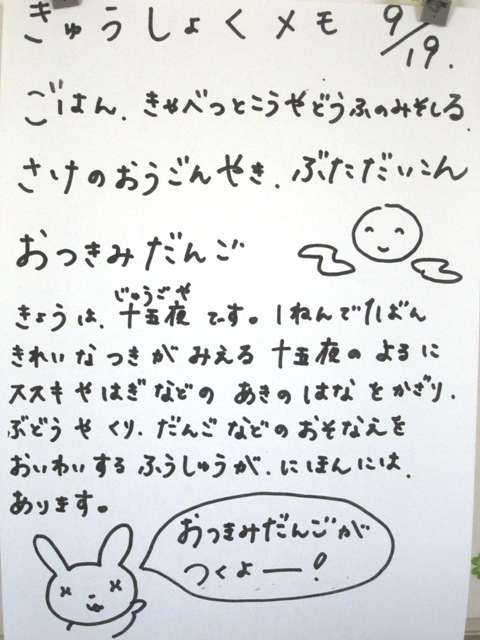 きゅうしょくメモ 9/19.
ごはん、きゃべつとこうやどうふのみそしる、
さけのおうごんやき、ぶただいこん
おつきみだんご
きょうは、十五夜です。1ねんで1ばん
じゅうごや
きれいなつきがみえる十五夜のよるに
ススキやはぎなどのあきのはなをかざり、
ぶどうやくり、だんごなどのおそなえを
おいわいするふうしゅうが、にほんには、
あります。
おつきみだんごが
つくよー!